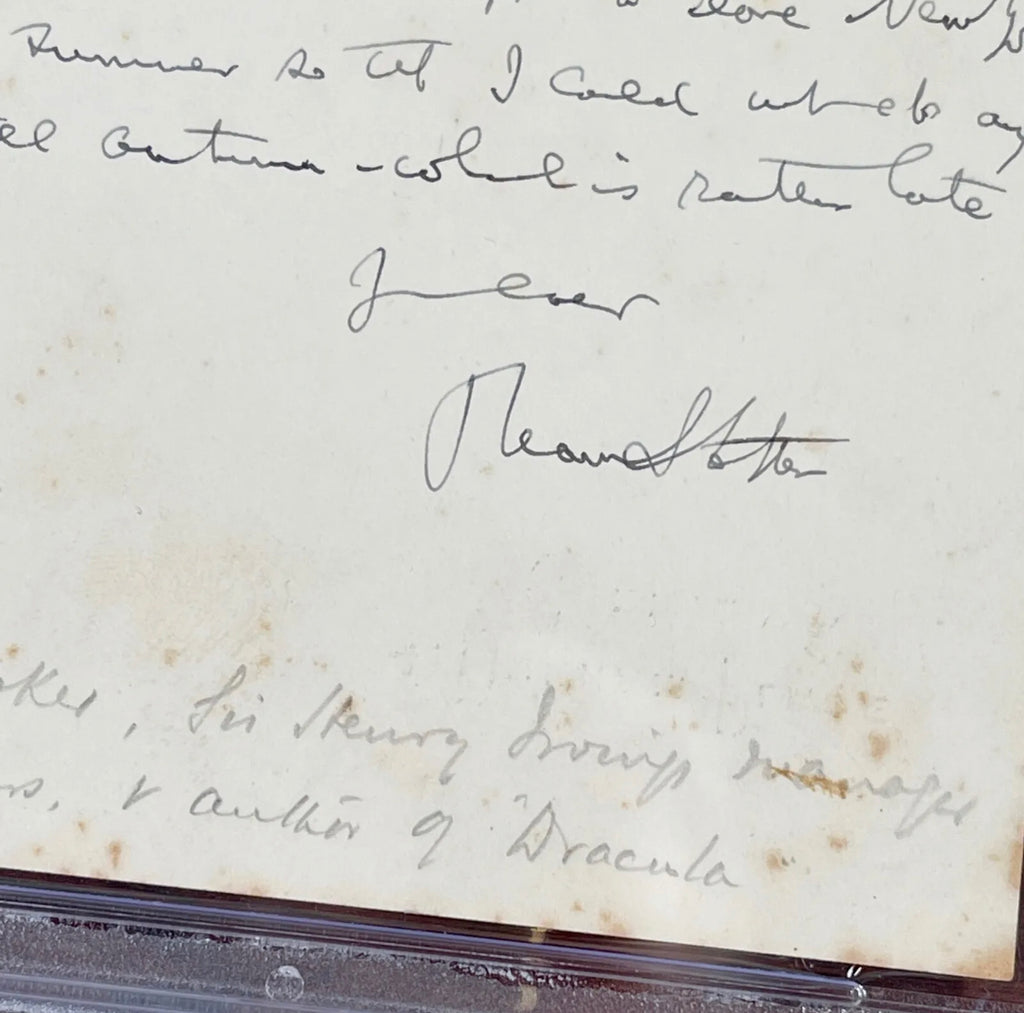 to leave New
summer so tht I could
autumn - which is rather late
Yours ever
Bram Stoker
oker, Sir Henry Irvings manager
rs, & author of "Dracula"